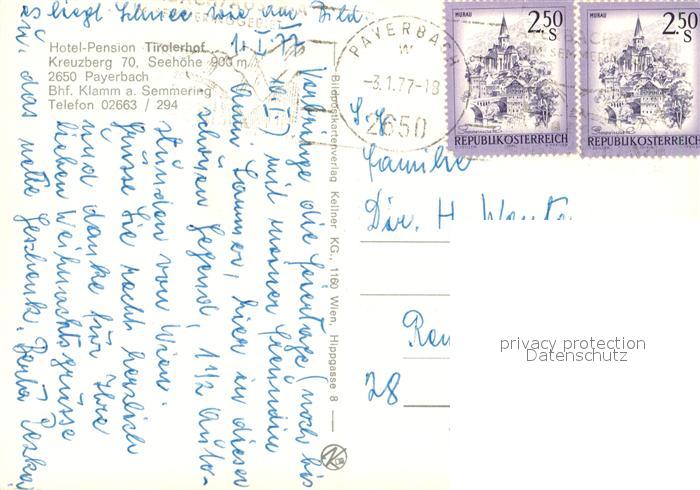 Hotel-Pension Tirolerhof
Kreuzberg 70, Seehöhe 900 m
2650 Payerbach
Bhf. Klamm a. Semmering
Telefon 02663 / 294
1. I. 77
Verbringe die Feiertage (noch bis
10. I.) mit meiner Freundin
Anni Sammer, hier in dieser
schönen Gegend, 1 1/2 Auto-
stunden von Wien.
Grüsse Sie recht herzlich
und danke für Ihre
lieben Weihnachtsgrüsse
u. das nette Geschenk. Berta
es liegt Schnee wie am Bild.
Bildpostkartenverlag Kellner KG., 1160 Wien, Hippgasse 8
PAYERBACH
-3.1.77-18
2650
MURAU
2.50
S
REPUBLIK ÖSTERREICH
MURAU
2.50
S
REPUBLIK ÖSTERREICH
Familie
Dir. H.
28
privacy protection
Datenschutz